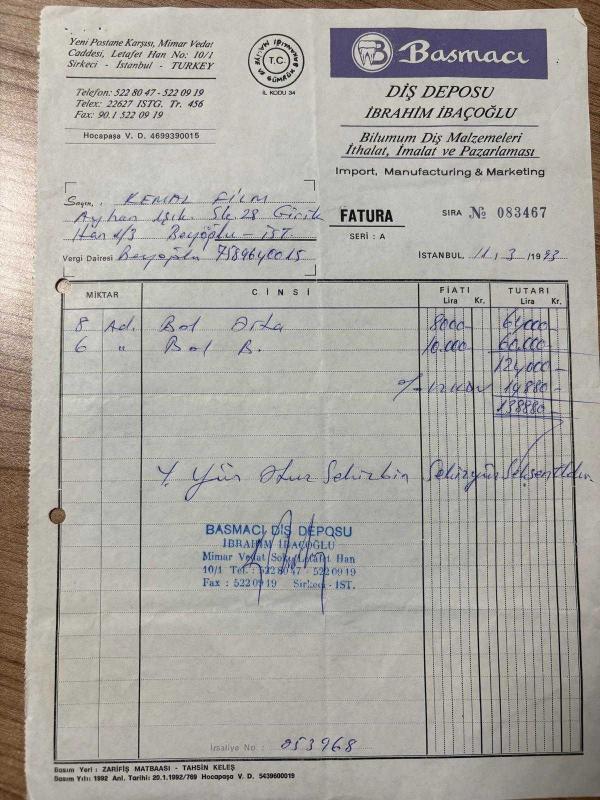 Yeni Postane Karşısı, Mimar Vedat
Caddesi, Letafet Han No: 10/1
Sirkeci - İstanbul - TURKEY
Telefon: 522 80 47 - 522 09 19
Telex: 22627 ISTG. Tr. 456
Fax: 90.1 522 09 19
Hocapaşa V. D. 4699390015
T.C.
MALİYE VE GÜMRÜK BAKANLIĞI
İL KODU 34
B Basmacı
DİŞ DEPOSU
İBRAHİM İBAÇOĞLU
Bilumum Diş Malzemeleri
İthalat, İmalat ve Pazarlaması
Import, Manufacturing & Marketing
Sayın, KEMAL FİLM
Ayhan Işık Sk 28 Girik
Han 4/3 Beyoğlu - İST.
Vergi Dairesi Beyoğlu 7589640015
FATURA
SERİ : A
SIRA № 083467
İSTANBUL, 11 / 3 / 1993
MİKTAR CİNSİ FİATI TUTARI
Lira Kr. Lira Kr.
8 Ad. Bol Orta 8000- 64000-
6 " Bol B. 10.000- 60.000-
124000-
% 12 KDV 14880-
138880-
Y. Yüz Otuz Sekizbin Sekizyüz Seksen
BASMACI DİŞ DEPOSU
İBRAHİM İBAÇOĞLU
Mimar Vedat Sok. Letafet Han
10/1 Tel. : 522 80 47 - 522 09 19
Fax : 522 09 19 Sirkeci - İST.
İrsaliye No : 053968
Basım Yeri : ZARİFİŞ MATBAASI - TAHSİN KELEŞ
Basım Yılı: 1992 Anl. Tarihi: 20.1.1992/769 Hocapaşa V. D. 5439600019